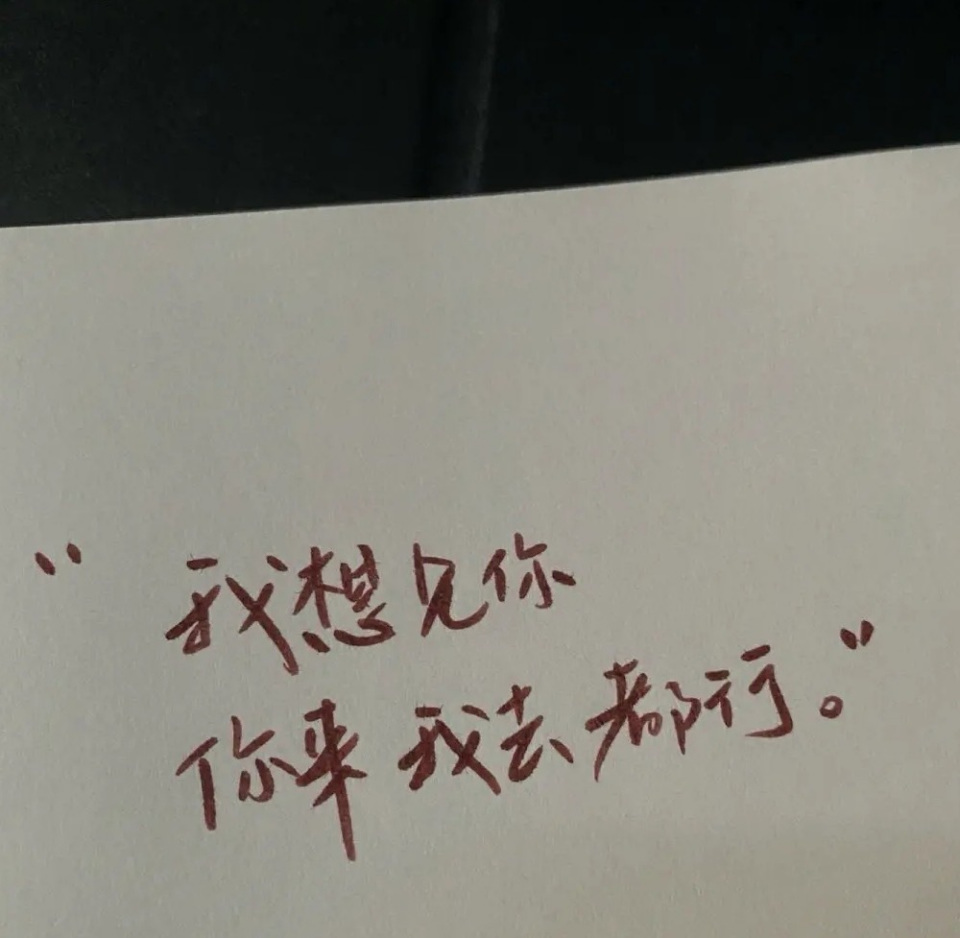 “我想见你
你来我去都行。”